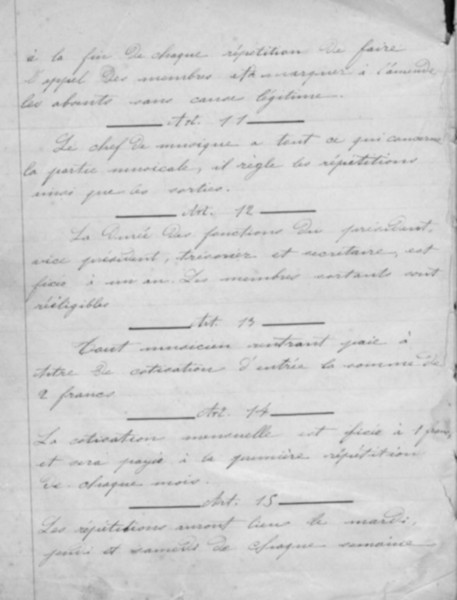 à la fin de chaque répétition de faire
l'appel des membres et marquer à l'amende
les absents sans cause légitime.
Art. 11
Le chef de musique a tout ce qui concerne
la partie musicale, il règle les répétitions
ainsi que les sorties.
Art. 12
La durée des fonctions du président,
vice président, trésorier et secrétaire, est
fixée à un an. Les membres sortants sont
rééligibles
Art. 13
Tout musicien rentrant paie à
titre de cotisation d'entrée la somme de
2 francs
Art. 14
La cotisation mensuelle est fixée à 1 franc,
et sera payée à la première répétition
de chaque mois.
Art. 15
Les répétitions auront lieu le mardi,
jeudi et samedi de chaque semaine